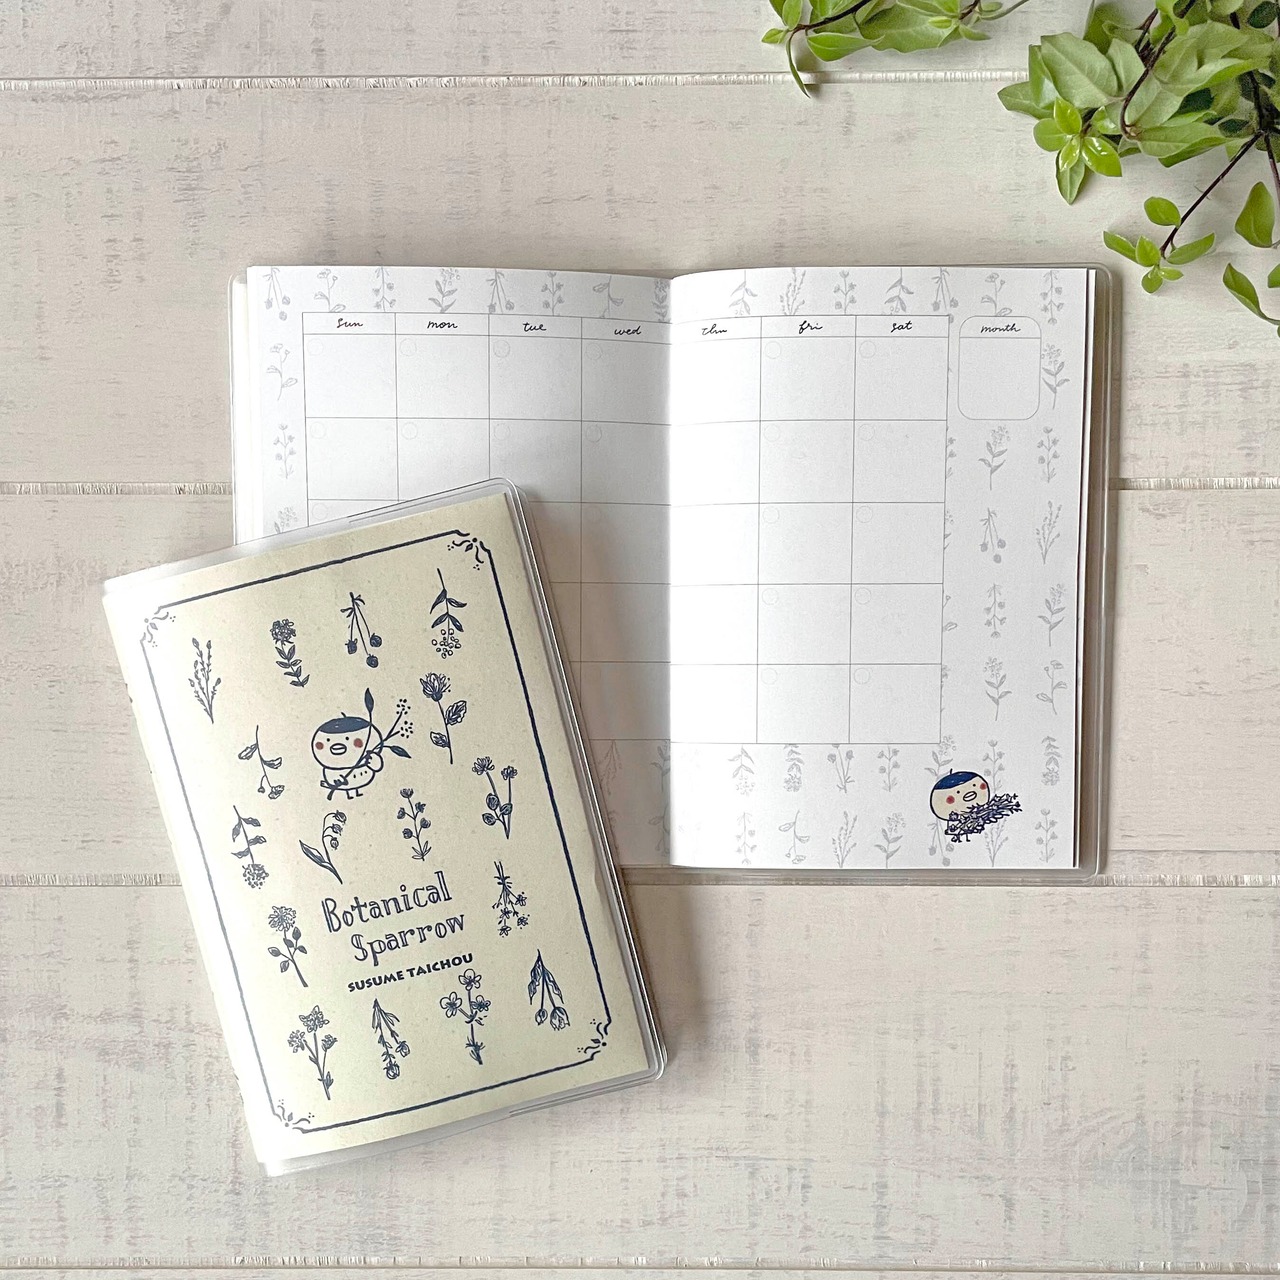 sun mon tue wed thu fri sat month
Botanical
Sparrow
SUSUME TAICHOU